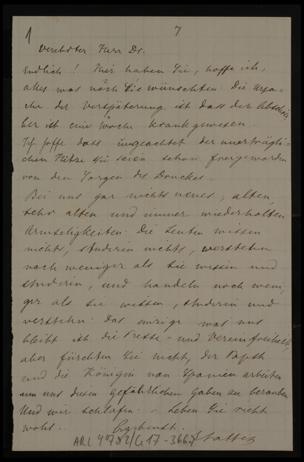 7
Verehrter Herr Dr.
Endlich! Hier haben Sie, hoffe ich,
alles was noch Sie wünschten. Die Ursa-
che der Verspätung ist dass der Abschrei-
ber ist eine Woche krank gewesen.
Ich hoffe dass ungeachtet der unerträgli-
chen Hitze Sie seien schon
von den Sorgen des Druckes.
Bei uns gar nichts neues, alten,
sehr alten und immer wiederholten
Armseligkeiten. Die Leuten wissen
nichts, studieren nichts, verstehen
noch weniger als sie wissen und
studieren, und handeln noch weni-
ger als sie wissen, studieren und
verstehen. Das einzige was uns
bleibt ist die Presse- und Vereinfreiheit,
aber fürchten Sie nicht, der Papst
und die Königin von Spanien arbeiten
um uns dieser gefährlichen Gaben zu berauben.
Und wir schlafen. Leben Sie recht
wohl.